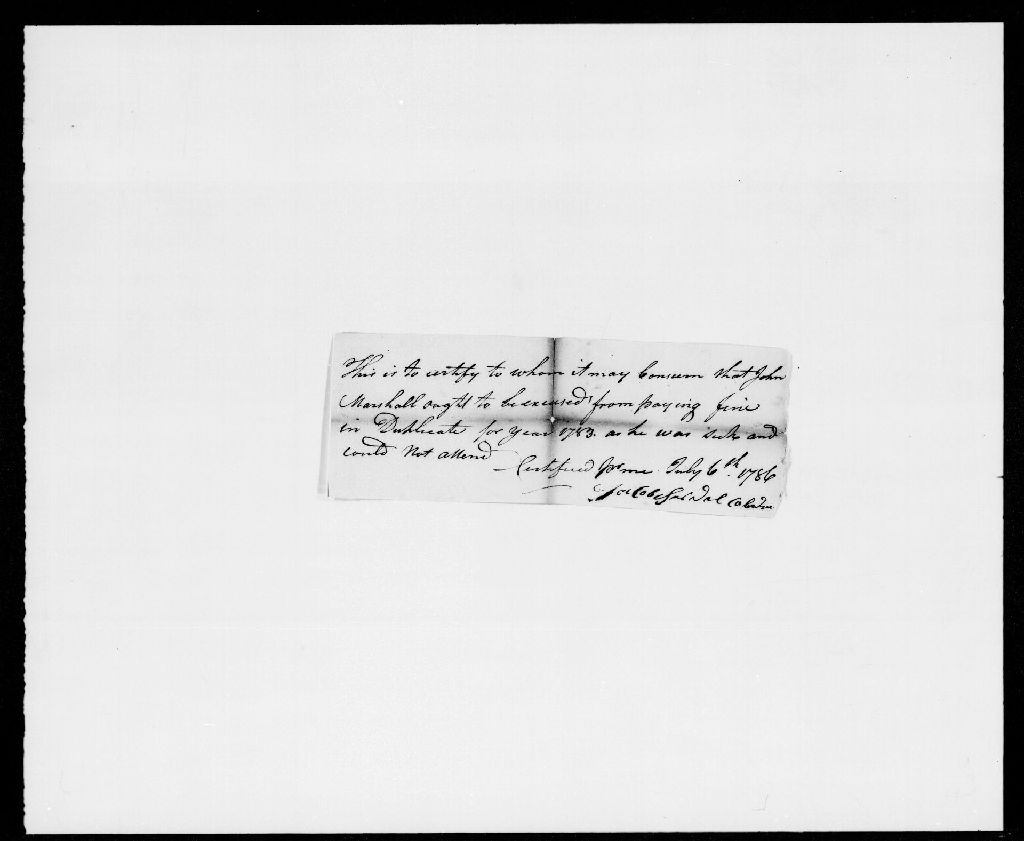 This is to certify to whom it may Consern that John
Marshall ought to be excused from paying fine
in Dublicate for year 1783. as he was sick and
could Not attend
Certifued pr me July 6th 1786